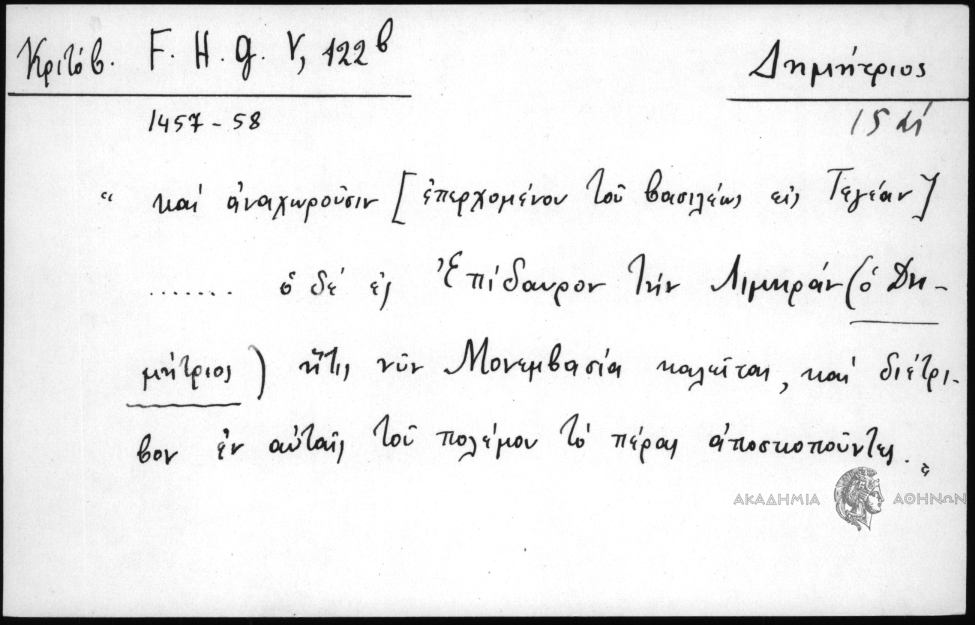 Κριτόβ. F. H. G. V, 122 β
Δημήτριος
1457-58
15 αἰ
“ καὶ ἀναχωροῦσιν [ἐπερχομένου τοῦ βασιλέως εἰς Τεγέαν]
....... ὁ δέ ἐς Ἐπίδαυρον τὴν Λιμηράν (ὁ Δη-
μήτριος) ἥτις νῦν Μονεμβασία καλεῖται, καὶ διέτρι-
βον ἐν αὐταῖς τοῦ πολέμου τὸ πέρας ἀποσκοποῦντες. „
ΑΚΑΔΗΜΙΑ ΑΘΗΝΩΝ